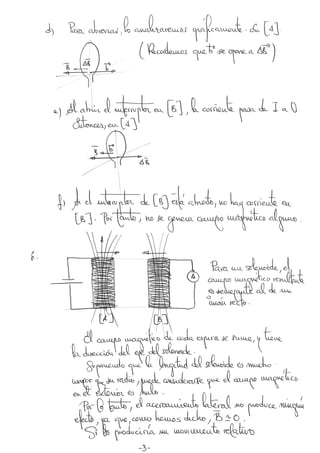 d) Para ahorrar, lo analizaremos gráficamente. En [A].
(Recordemos que b⃗ se opone a ΔB⃗)
B ΔB b
e) Al abrir el interruptor en [B], la corriente pasa de I a 0
Entonces, en [A]
B b
ΔB
f) Si el interruptor de [B] está abierto, no hay corriente en
[B]. Por tanto, no se genera campo magnético alguno.
6.
A
[A] [B]
Para un solenoide, el
campo magnético resultante
es semejante al de un
imán recto.
El campo magnético de cada espira se suma, y tiene
la dirección del eje del solenoide.
Suponiendo que la longitud del solenoide es mucho
mayor que su radio, puede considerarse que el campo magnético
en el exterior es nulo.
Por lo tanto, el acercamiento lateral no produce ningún
efecto, ya que, como hemos dicho, B≃0.
Sí lo produciría un movimiento relativo
-3-